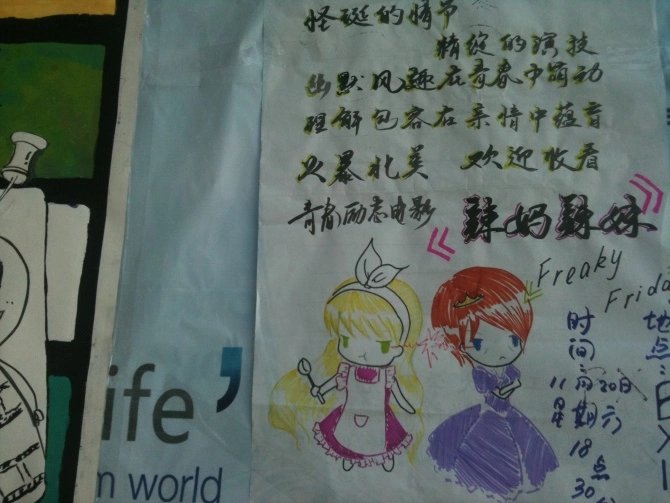 怪诞的情节
精绽的演技
幽默风趣在青春中萌动
理解包容在亲情中蕴育
火暴北美 欢迎收看
青春励志电影 《辣妈辣妹》
Freaky
Frida
时间:
11月20日
星期六
18点
30分
地点:
ife'
m world